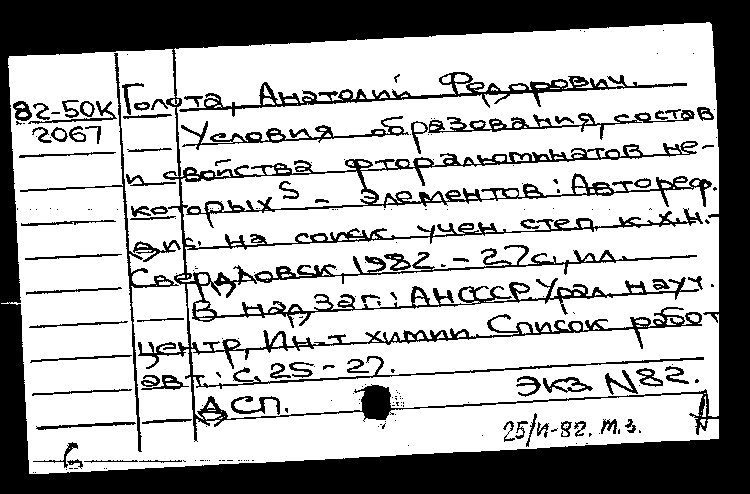 82-50К Голота, Анатолий Федорович.
2067 Условия образования, состав
и свойства фторалюминатов не-
которых S - элементов: Автореф.
дис. на соиск. учен. степ. к.х.н.-
Свердловск, 1982. - 27с., ил.
В надзаг.: АН СССР. Урал. науч.
центр, Ин-т химии. Список работ
авт.: с. 25 - 27.
ДСП. экз N82.
25/VI-82. т.з.